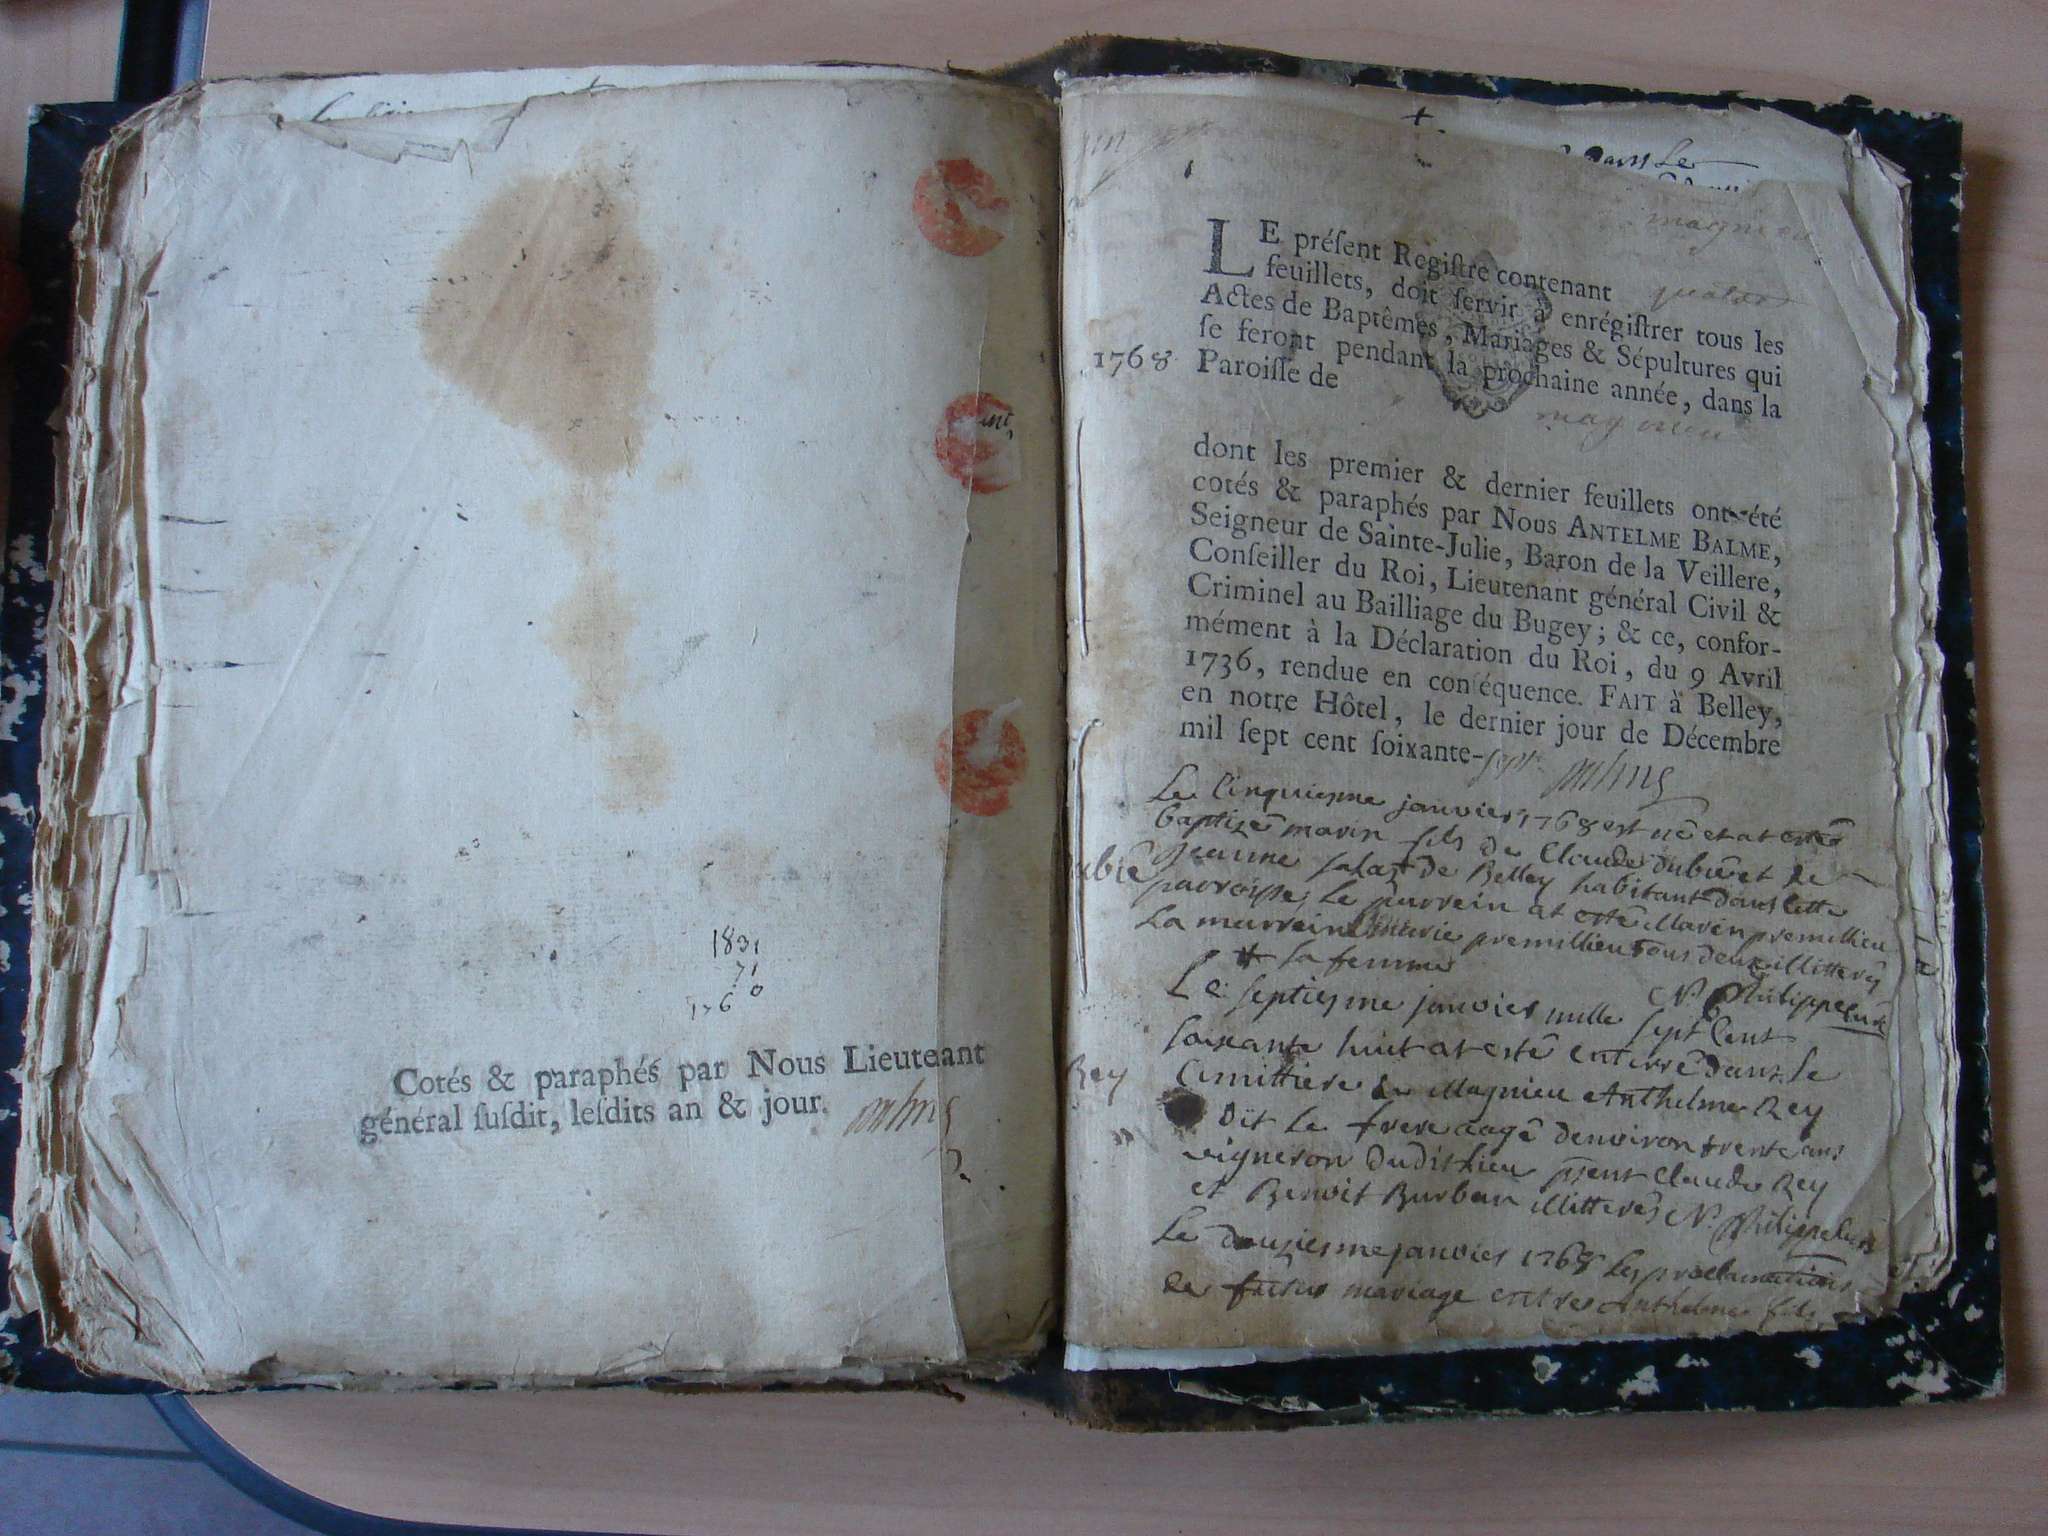 1831
71
176 0
Cotés & paraphés par Nous Lieutenant
général ſuſdit, leſdits an & jour.
+
dans le
magnieu
LE préſent Regiſtre contenant quatre
feuillets, doit ſervir à enrégiſtrer tous les
Actes de Baptêmes, Mariages & Sépultures qui
ſe feront pendant la prochaine année, dans la
1768 Paroiſſe de
magnieu
dont les premier & dernier feuillets ont été
cotés & paraphés par Nous ANTELME BALME,
Seigneur de Sainte-Julie, Baron de la Veillere,
Conſeiller du Roi, Lieutenant général Civil &
Criminel au Bailliage du Bugey; & ce, confor-
mément à la Déclaration du Roi, du 9 Avril
1736, rendue en conſéquence. FAIT à Belley,
en notre Hôtel, le dernier jour de Décembre
mil ſept cent ſoixante-sept
Le cinquiesme janvier 1768 est né et at estés
baptizé marin fils de Claude dubié et de
jeanne de Belley habitant dans cette
parroisse, le parrein at esté Marin premillieu
La marreine marie premillieu tous deux illitterés
# sa femme
N. Philippe curé
Le septiesme janvier mille sept cent
soixante huit at esté enterré dans le
Rey Cimittiere de Magnieu Anthelme Rey
Dit Le frere aagé denviron trente ans
vigneron dudit lieu pñent Claude Rey
et Benoit Burban illitterés N. Philippe curé
Le douziesme janvier 1768 les proclamations
de futur mariage entre Anthelme fils